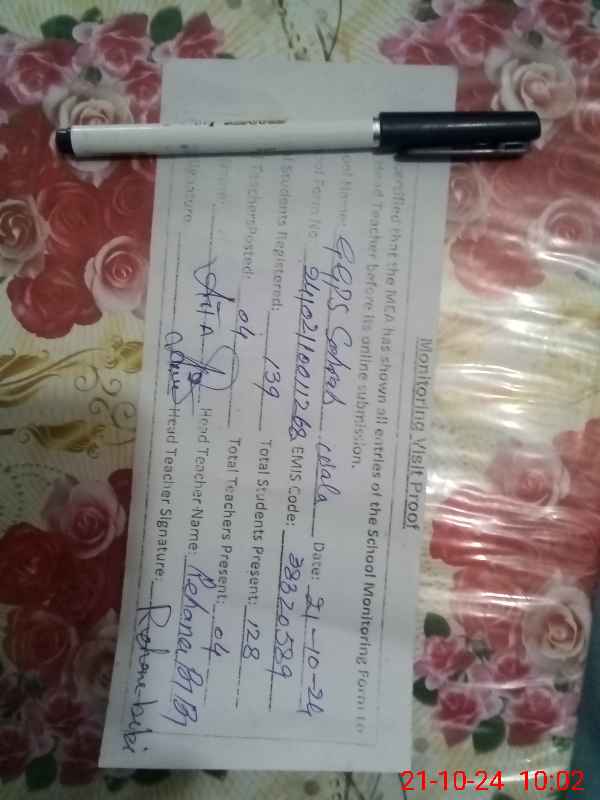 Monitoring Visit Proof
that the MEA has shown all entries of the School Monitoring Form to
Head Teacher before its online submission.
Name: GGPS Sohrab Wala Date: 21-10-24
Form No. EMIS Code: 38820589
Students Registered: 139 Total Students Present: 128
Teachers Posted: 04 Total Teachers Present: 04
Head Teacher Name: Rehana Bi Bi
Head Teacher Signature: Rehana bibi
21-10-24 10:02